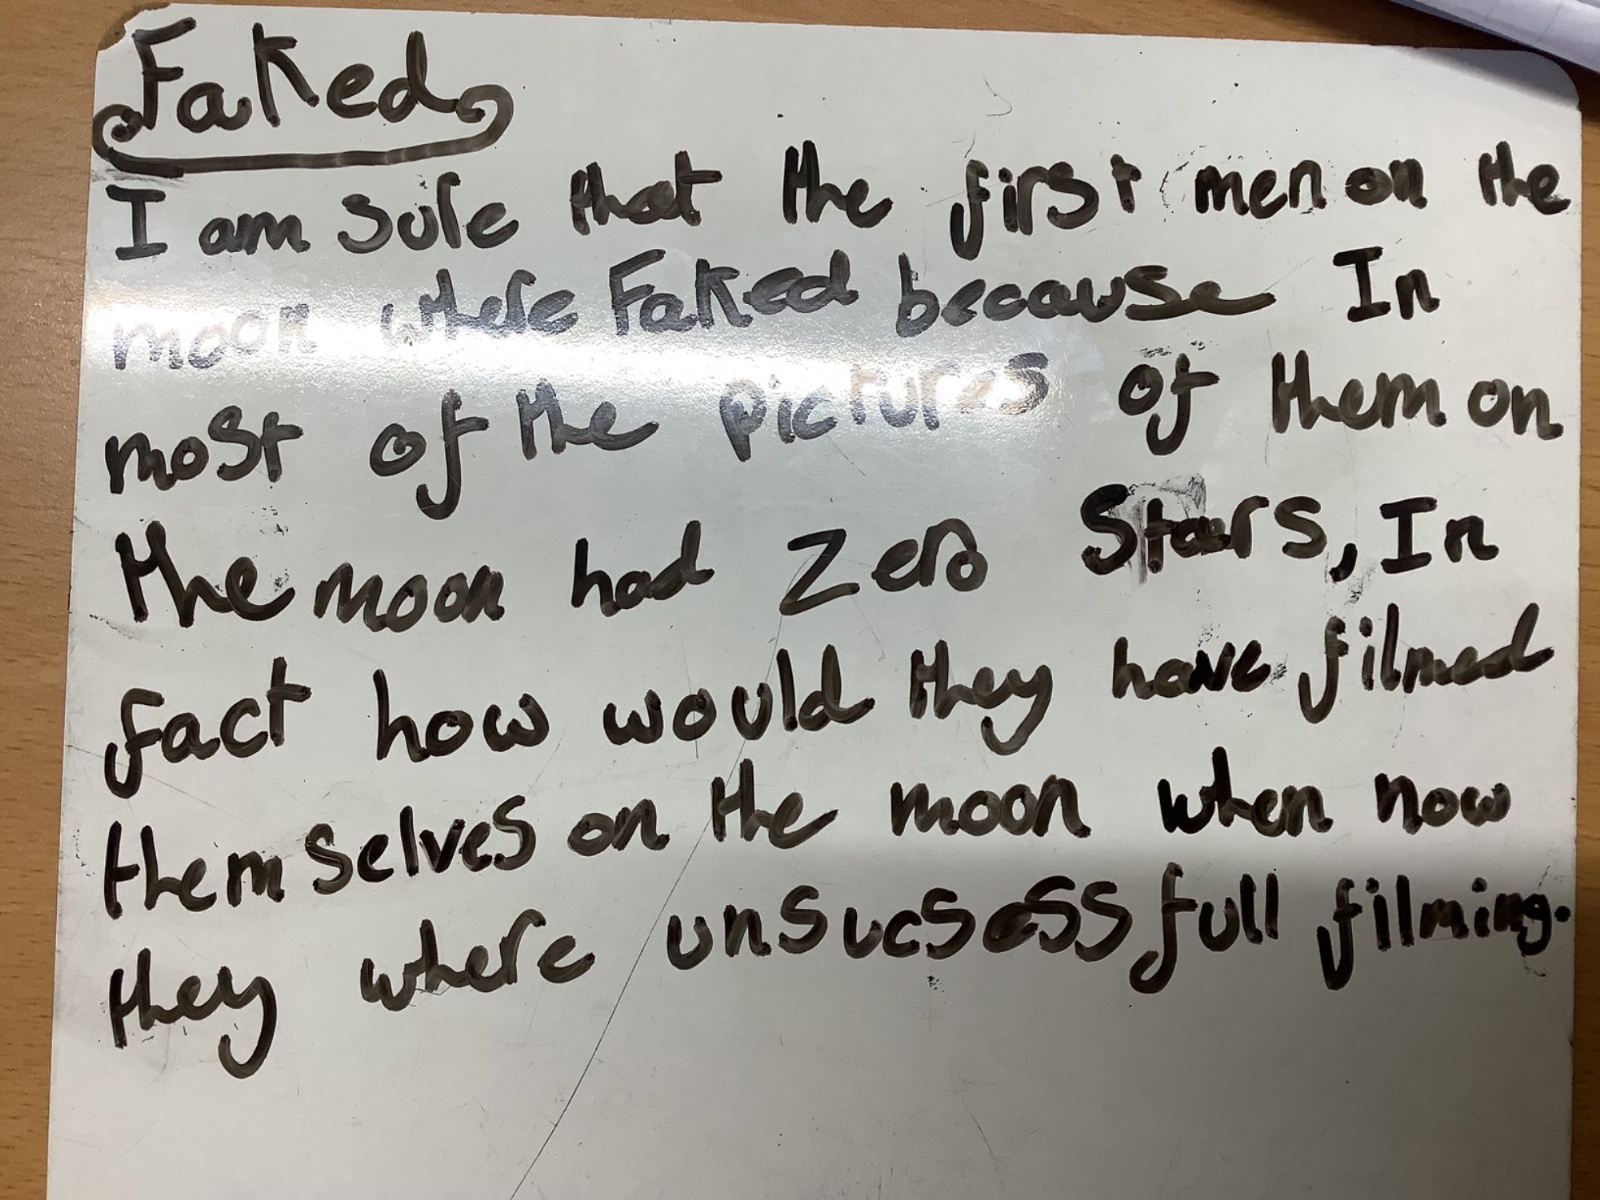 Faked
I am sure that the first men on the
moon where Faked because In
most of the pictures of them on
the moon had Zero Stars, In
fact how would they have filmed
themselves on the moon when now
they where unsucsessfull filming.